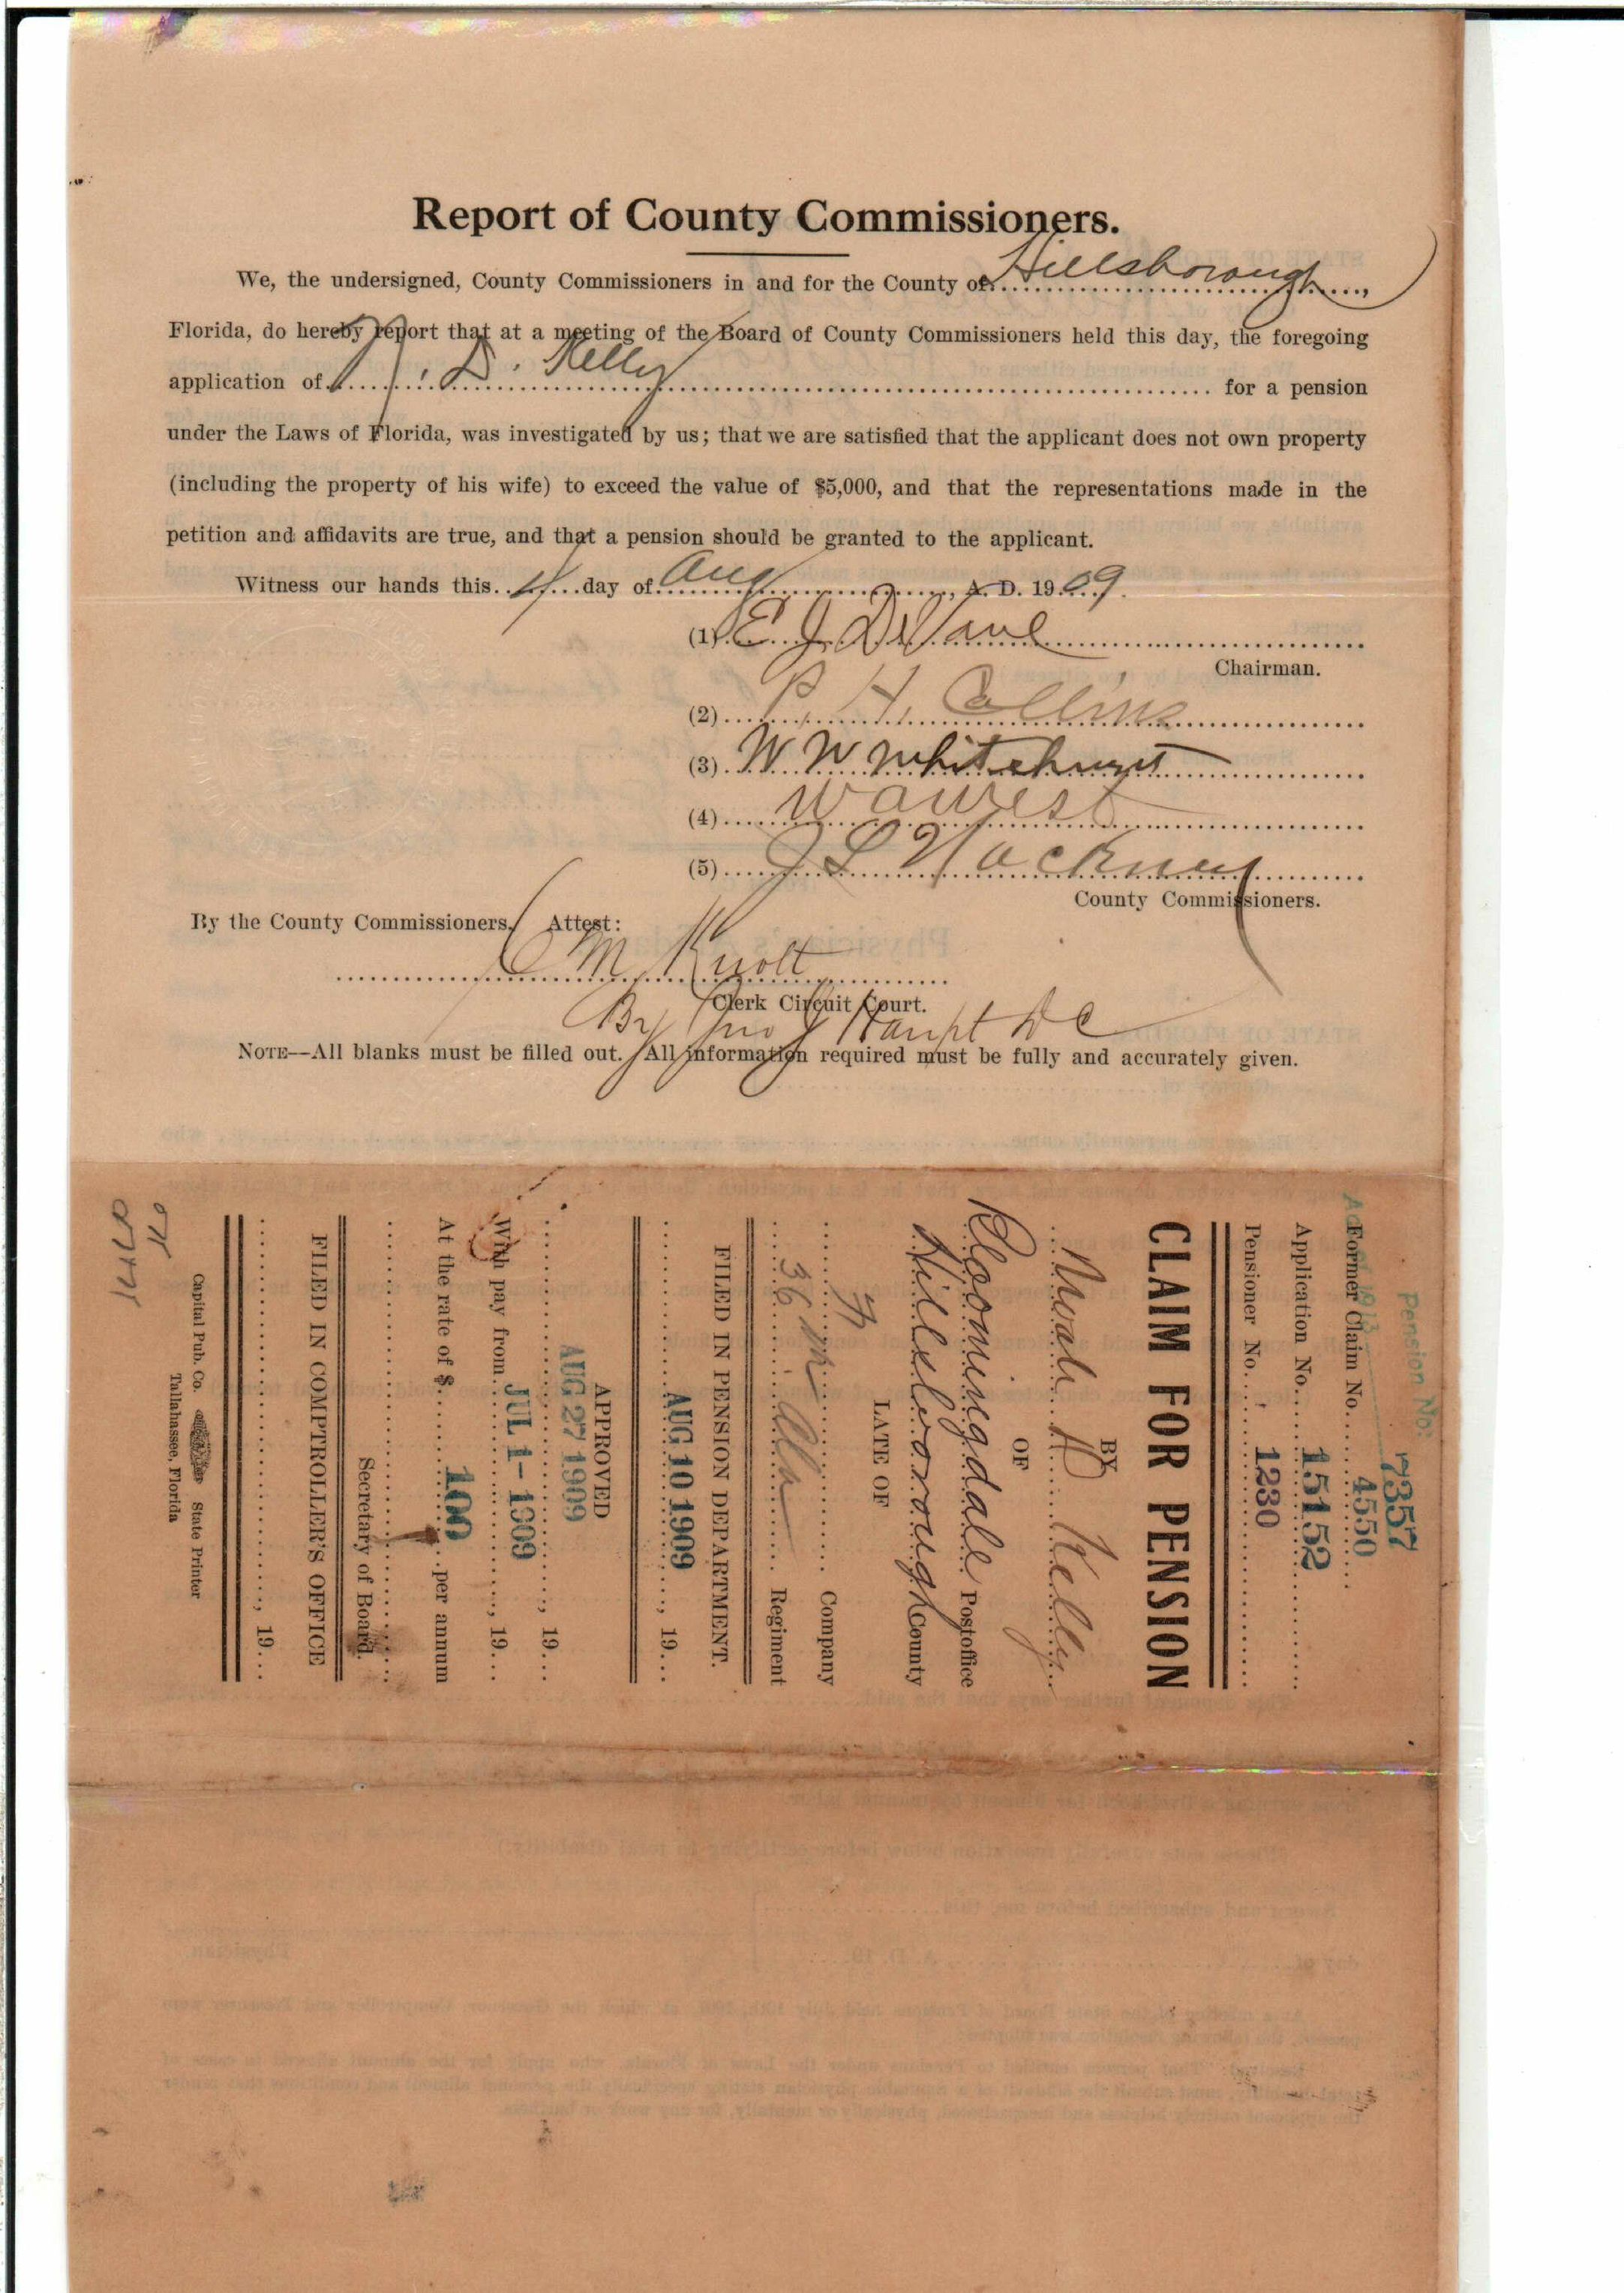 Report of County Commissioners.
We, the undersigned, County Commissioners in and for the County of Hillsborough,
Florida, do hereby report that at a meeting of the Board of County Commissioners held this day, the foregoing
application of N. D. Kelly for a pension
under the Laws of Florida, was investigated by us; that we are satisfied that the applicant does not own property
(including the property of his wife) to exceed the value of $5,000, and that the representations made in the
petition and affidavits are true, and that a pension should be granted to the applicant.
Witness our hands this 4 day of Aug, A. D. 1909.
(1) E J DeVane
Chairman.
(2) P. H. Collins
(3) W W Whitehurst
(4) W A West
(5) J L Hackney
County Commissioners.
By the County Commissioners. Attest:
M Knott
Clerk Circuit Court.
By Jno J Haupt D C
NOTE--All blanks must be filled out. All information required must be fully and accurately given.
Pension No. 7357
Former Claim No. 4550
Application No. 15152
Pensioner No. 1230
CLAIM FOR PENSION
BY
Noah D Kelly
OF
Bloomingdale Postoffice
Hillsborough County
LATE OF
Company
36 Ala Regiment
FILED IN PENSION DEPARTMENT.
AUG 10 1909, 19
APPROVED
AUG 27 1909, 19
With pay from JUL 1-1909, 19
At the rate of $ 100 per annum
Secretary of Board.
FILED IN COMPTROLLER'S OFFICE
, 19
Capital Pub. Co. State Printer
Tallahassee, Florida